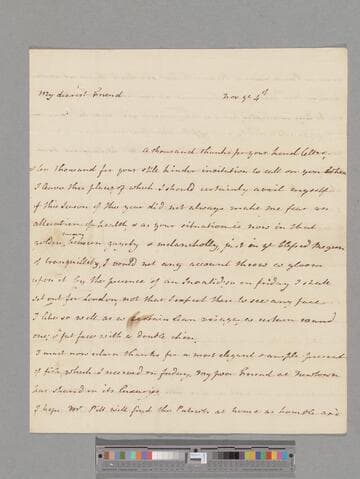 My dearest Friend Nov ye 4th
A thousand thanks for your kind letter,
& ten thousand for your still kinder invitation to call on you
I know the place of which I should certainly avail myself
if this season of the year did not always make me fear an
alteration of health & as your situation is now in that
golden mean between gayety & melancholly, just in ye blessed
of tranquillity, I would not on any account throw a gloom
upon it by the presence of an Invalid so on friday I shall
set out for London, not that I expect there to see any face
I like so well as a certain lean visage, a certain round
one, & fat face with a double chin.
I must now return thanks for a most elegant & ample present
of fish which I received on friday, my poor Friend at Newtown
has shared in its
I hope Mr Pitt will find the Patriots at home as humble and